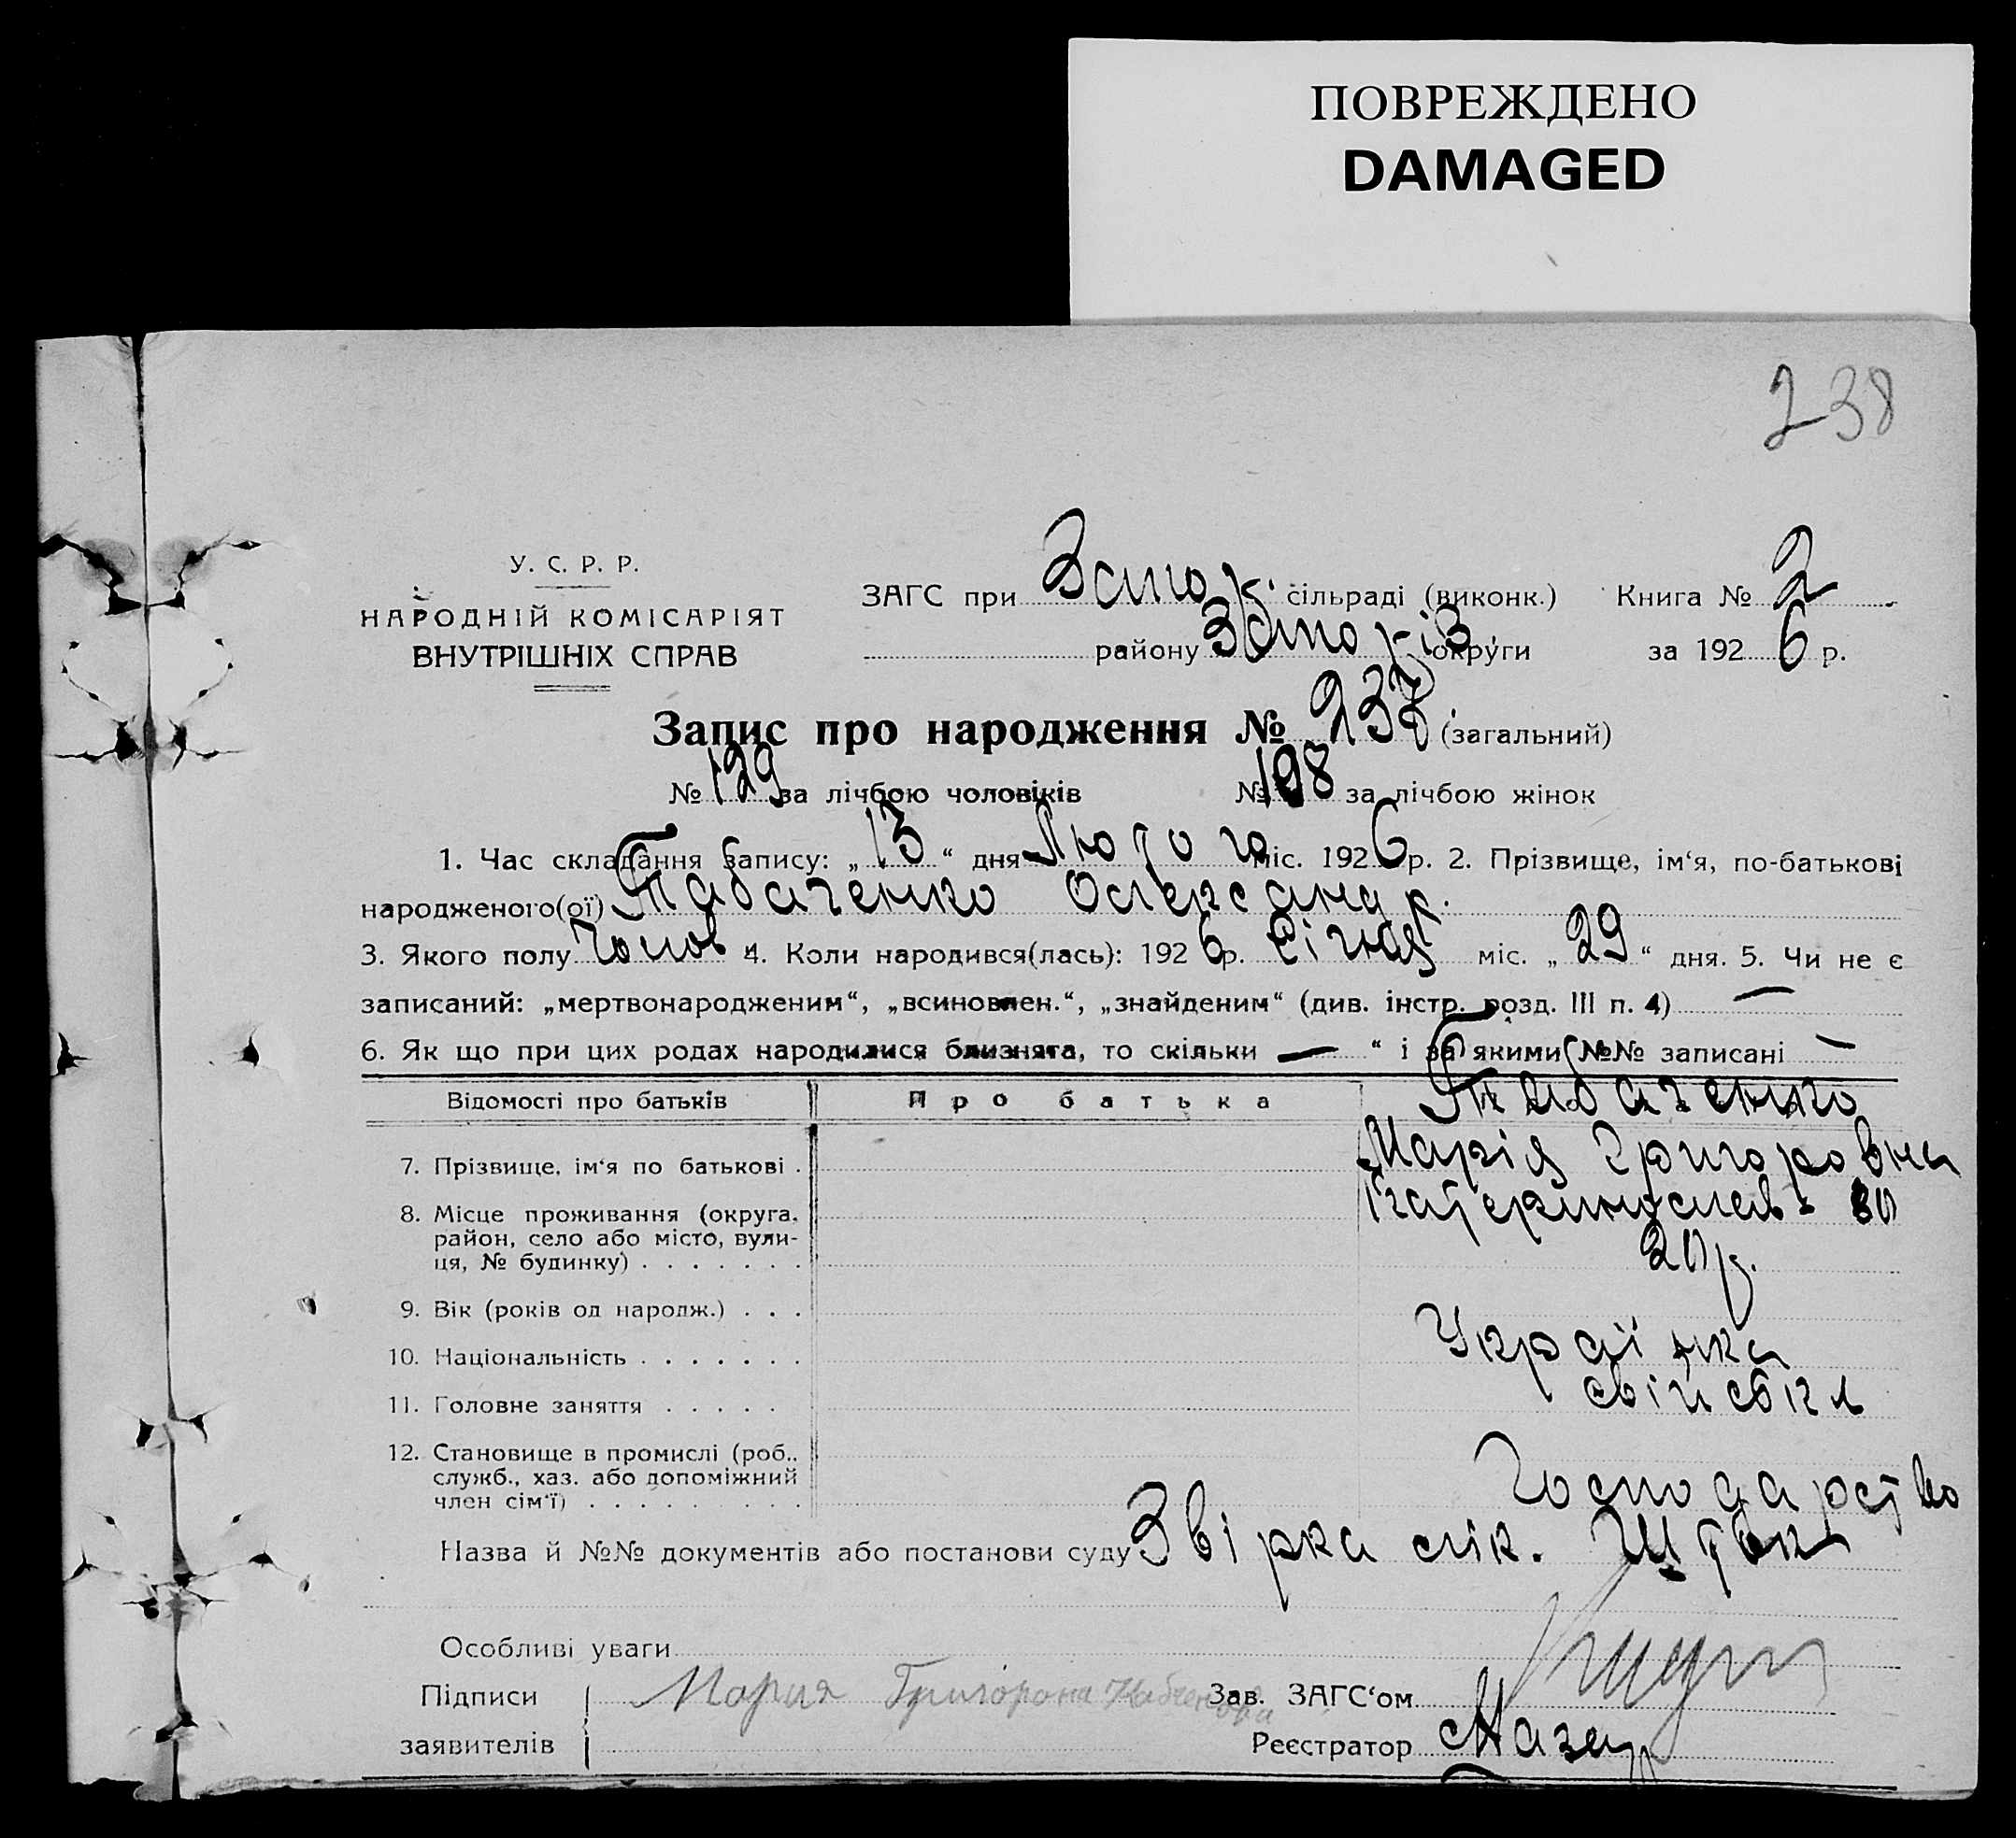 ПОВРЕЖДЕНО
DAMAGED
238
У. С. Р. Р.
НАРОДНІЙ КОМІСАРІЯТ
ВНУТРІШНІХ СПРАВ
ЗАГС при Запо сільраді (виконк.) Книга № 2
району Запоріз округи за 1926 р.
Запис про народження № 237 (загальний)
№ 129 за лічбою чоловіків № 108 за лічбою жінок
1. Час складання запису: „13“ дня Лютого міс. 1926 р. 2. Прізвище, ім‘я, по-батькові
народженого(ої) Табаченко Олександр.
3. Якого полу Чолов 4. Коли народився(лась): 1926 р. Січня міс. „29“ дня. 5. Чи не є
записаний: „мертвонародженим“, „всиновлен.“, „знайденим“ (див. інстр. розд. III п. 4) —
6. Як що при цих родах народилися близнята, то скільки — “ і за якими №№ записані —
Відомості про батьків Про батька Табаченко
7. Прізвище, ім‘я по батькові . Марія Григоровна
8. Місце проживання (округа, Катеринослав 80
район, село або місто, вули-
ця, № будинку) . . . . . . . 20 р.
9. Вік (років од народж.) . . .
10. Національність . . . . . . . Українка
11. Головне заняття . . . . .
12. Становище в промислі (роб.. Господарство
служб., хаз. або допоміжний
член сім‘ї) . . . . . . . . .
Назва й №№ документів або постанови суду Звірка лік.
Особливі уваги
Підписи Мария Григорона Зав. ЗАГС‘ом
заявителів Реєстратор Мазер